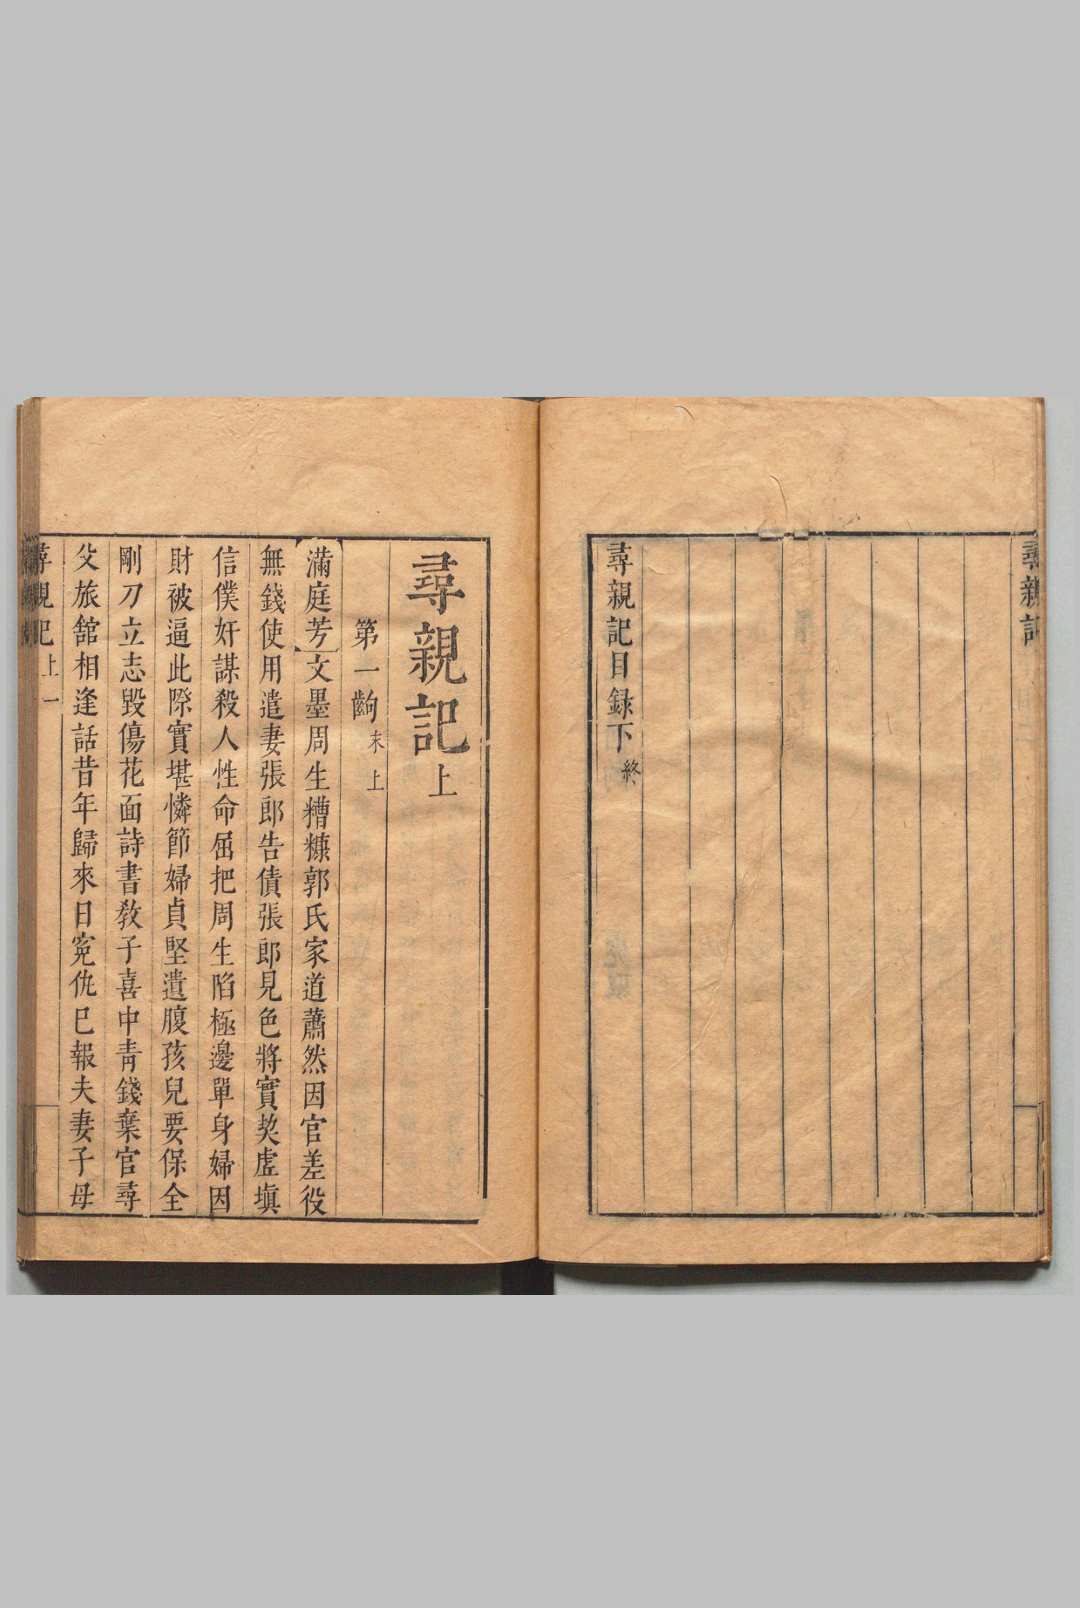 尋親記
尋親記目録下終
尋親記上
第一齣 末上
滿庭芳 文墨周生糟糠郭氏家道蕭然因官差役
無錢使用遣妻張郎告債張郎見色將實契虛填
信僕奸謀殺人性命屈把周生陷極邊單身婦因
財被逼此際實堪憐節婦貞堅遺腹孩兒要保全
剛刀立志毀傷花面詩書教子喜中青錢棄官尋
父旅舘相逢話昔年歸來日寃仇已報夫妻子母
尋親記上 一